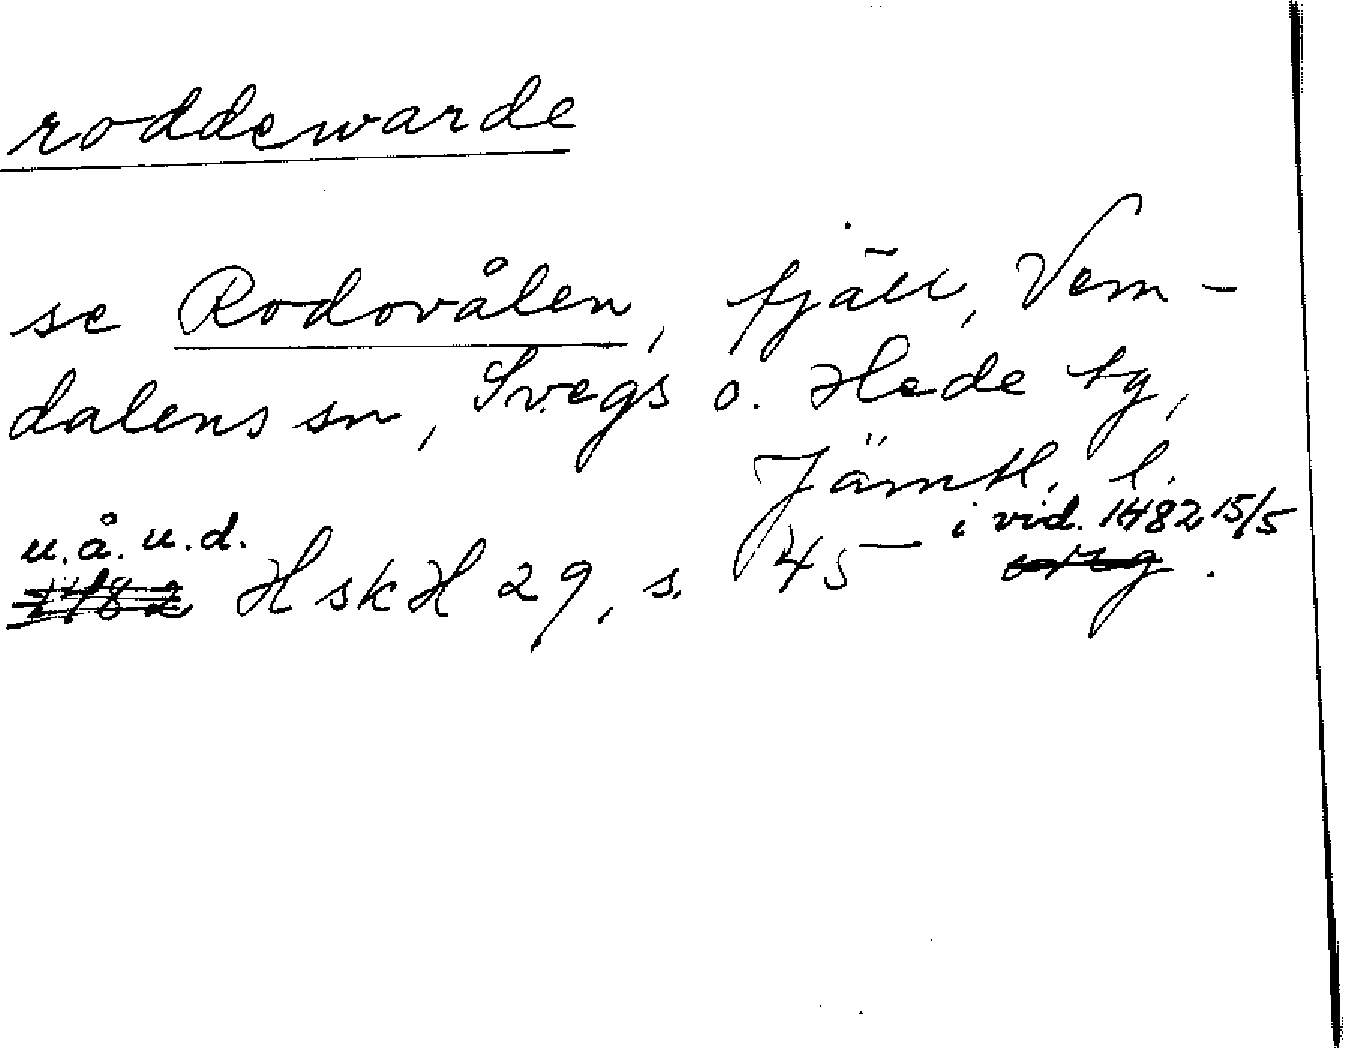 roddewarde
se Rodovålen, fjäll, Vem-
dalens sn, Svegs o. Hede tg,
Jämtl. l.
u.å. u.d. i vid. 1482 15/5
1482 HskH 29, s. 45 – orig.